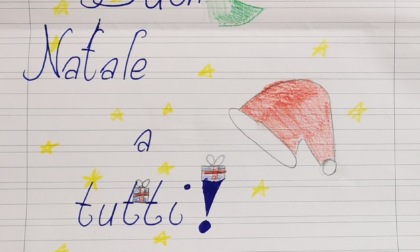 Buon
Natale
a
tutti!